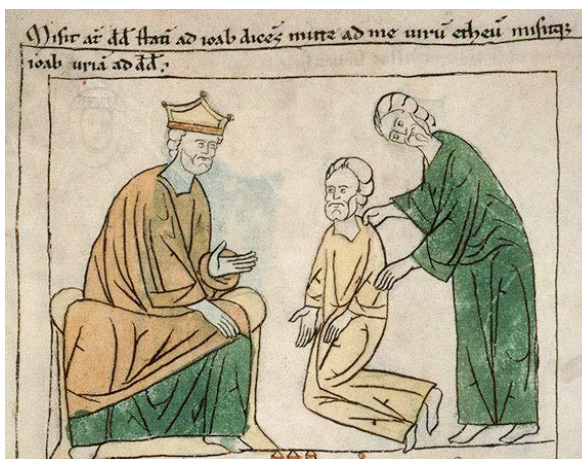 Misit at̄ dd̄ statī ad ioab dicēs mitte ad me uirū etheū misitqꝫ
ioab uriā ad dd̄.